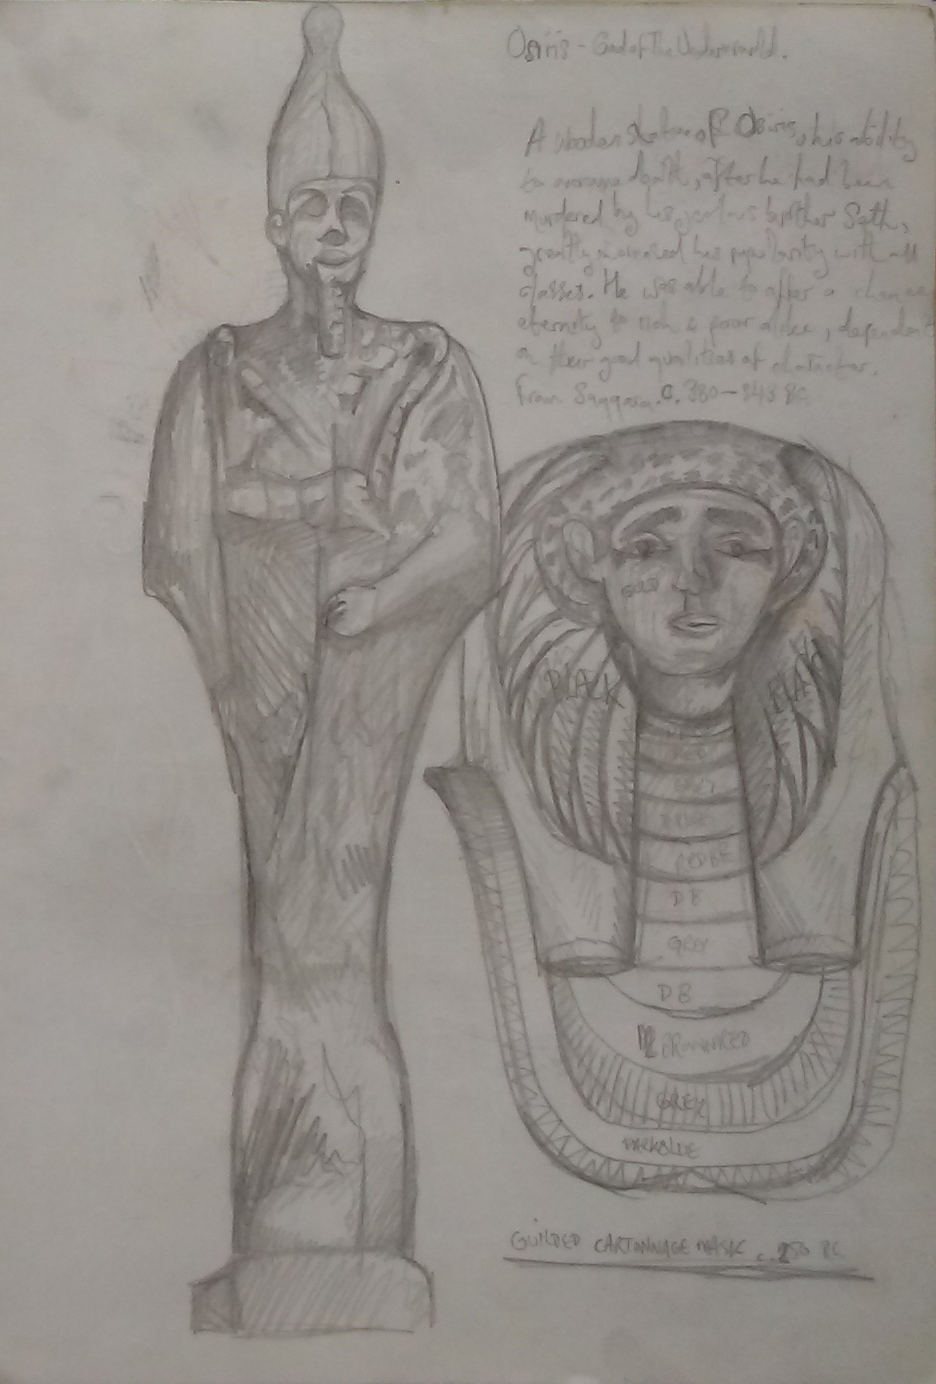 Osiris - God of The Underworld.
A wooden statue of Osiris, his ability
to overcome death, after he had been
murdered by his jealous brother Seth,
greatly increased his popularity with all
classes. He was able to offer a chance
eternity to rich & poor alike, dependent
on their good qualities of character.
From Saqqara. c. 380-343 BC
GOLD
BLACK
BLA
DB
GREY
DB
BROWN RED
GREY
DARK BLUE
GUILDED CARTONNAGE MASK c. 250 BC